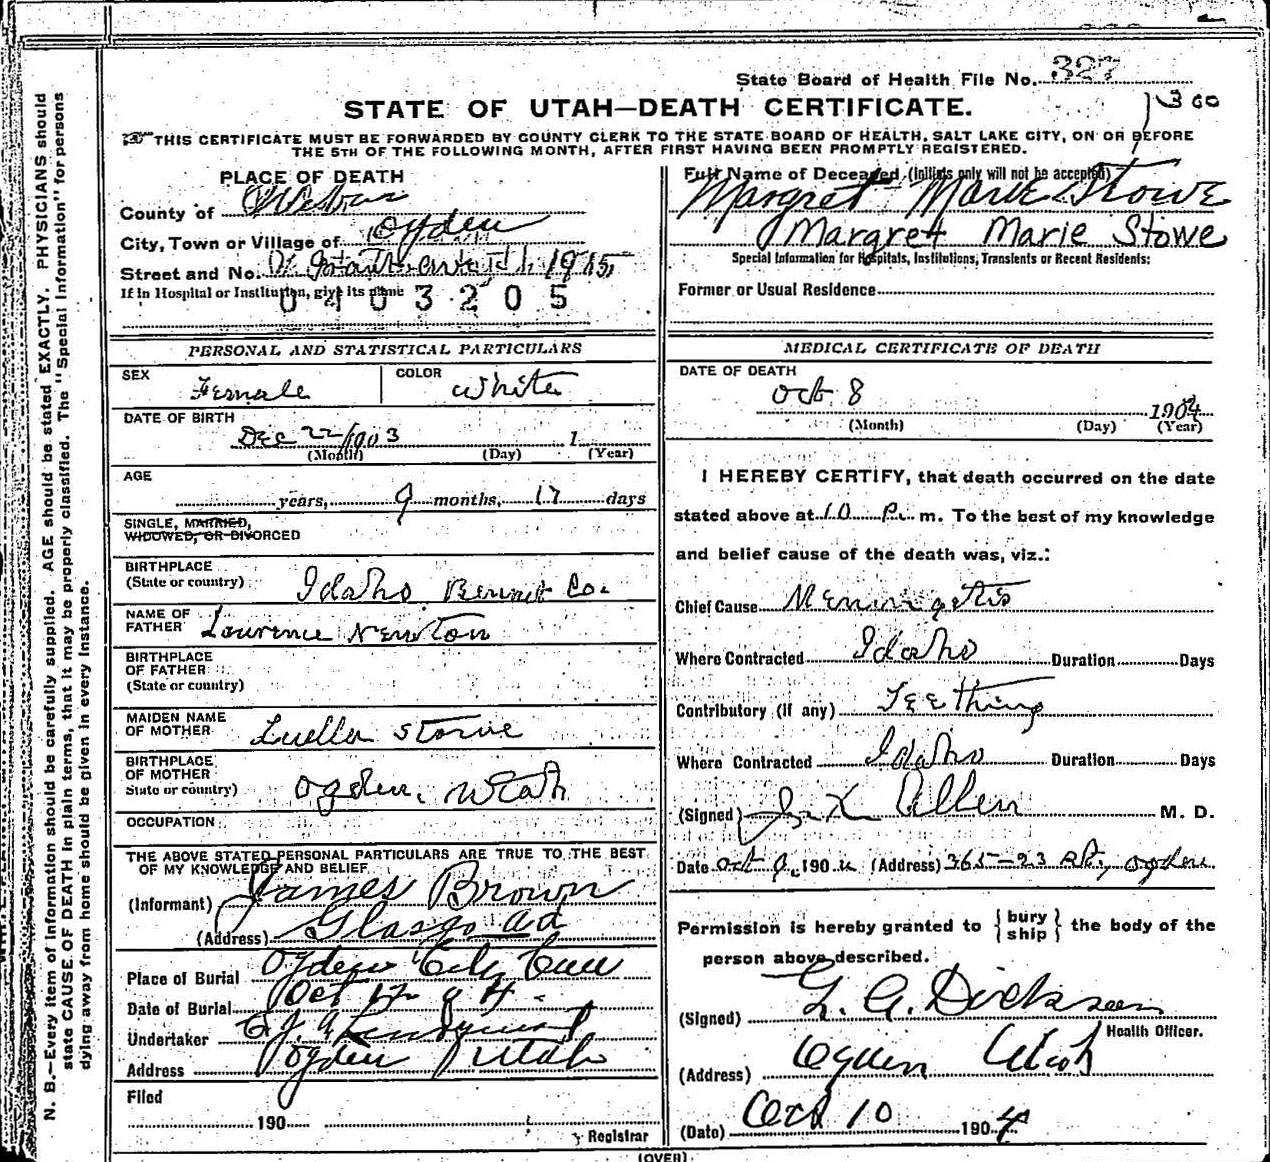 State Board of Health File No. 327
300
STATE OF UTAH—DEATH CERTIFICATE.
THIS CERTIFICATE MUST BE FORWARDED BY COUNTY CLERK TO THE STATE BOARD OF HEALTH, SALT LAKE CITY, ON OR BEFORE
THE 5TH OF THE FOLLOWING MONTH, AFTER FIRST HAVING BEEN PROMPTLY REGISTERED.
N. B.—Every item of Information should be carefully supplied. AGE should be stated EXACTLY. PHYSICIANS should
state CAUSE OF DEATH in plain terms, that it may be properly classified. The "Special Information" for persons
dying away from home should be given in every instance.
PLACE OF DEATH
County of Weber
City, Town or Village of Ogden
Street and No. 1915
If in Hospital or Institution, give its name
0403205
Full Name of Deceased (Initials only will not be accepted)
Margret Marie Stowe
Margrett Marie Stowe
Special Information for Hospitals, Institutions, Transients or Recent Residents:
Former or Usual Residence
PERSONAL AND STATISTICAL PARTICULARS
SEX Female
COLOR White
DATE OF BIRTH
Dec 22/1903 1
(Month) (Day) (Year)
AGE
years, 9 months, 17 days
SINGLE, MARRIED,
WIDOWED, OR DIVORCED
BIRTHPLACE
(State or country) Idaho Co.
NAME OF
FATHER Lawrence Newton
BIRTHPLACE
OF FATHER
(State or country)
MAIDEN NAME
OF MOTHER Luella Stowe
BIRTHPLACE
OF MOTHER
State or country) Ogden, Utah
OCCUPATION
THE ABOVE STATED PERSONAL PARTICULARS ARE TRUE TO THE BEST
OF MY KNOWLEDGE AND BELIEF
(Informant) James Brown
(Address) Glasgo
Place of Burial Ogden City Cem
Date of Burial Oct 12 04
Undertaker
Address Ogden Utah
Filed
190
Registrar
MEDICAL CERTIFICATE OF DEATH
DATE OF DEATH
Oct 8 1904
(Month) (Day) (Year)
I HEREBY CERTIFY, that death occurred on the date
stated above at 10 P. m. To the best of my knowledge
and belief cause of the death was, viz.:
Chief Cause Meningetis
Where Contracted Idaho Duration Days
Contributory (if any) Teething
Where Contracted Idaho Duration Days
(Signed) Allen M. D.
Date Oct 9, 190 4 (Address) 365-23 St, Ogden
Permission is hereby granted to { bury ship } the body of the
person above described.
(Signed) Dickson
Health Officer.
(Address) Ogden Utah
(Date) Oct 10 1904
(OVER)